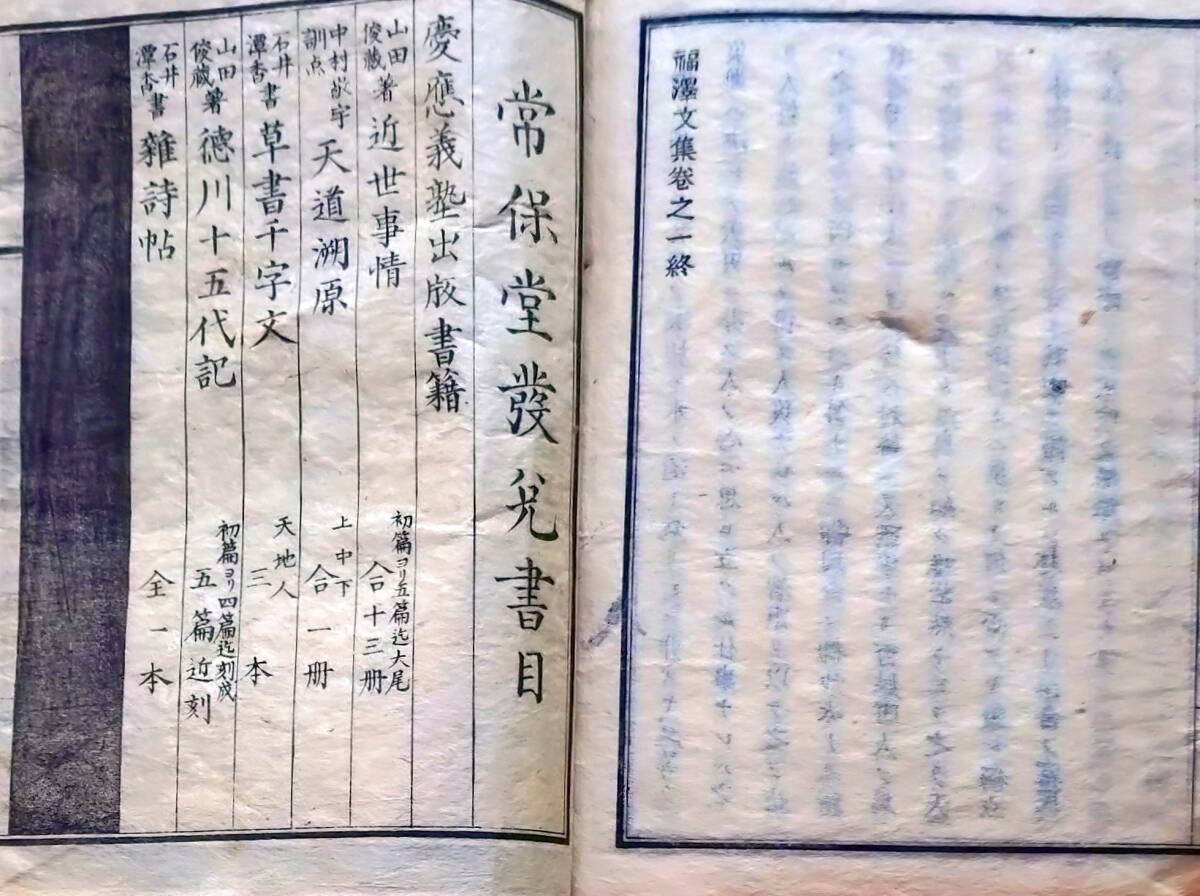 福澤文集卷之一終
常保堂發兌書目
慶應義塾出版書籍
山田
俊藏著
近世事情
初篇ヨリ五篇迄大尾
合十三册
中村敬宇
訓点
天道溯原
上中下
合一册
石井
潭香書
草書千字文
天地人
三本
山田
俊藏著
德川十五代記
初篇ヨリ四篇迄刻成
五篇近刻
石井
潭香書
雜詩帖
全一本